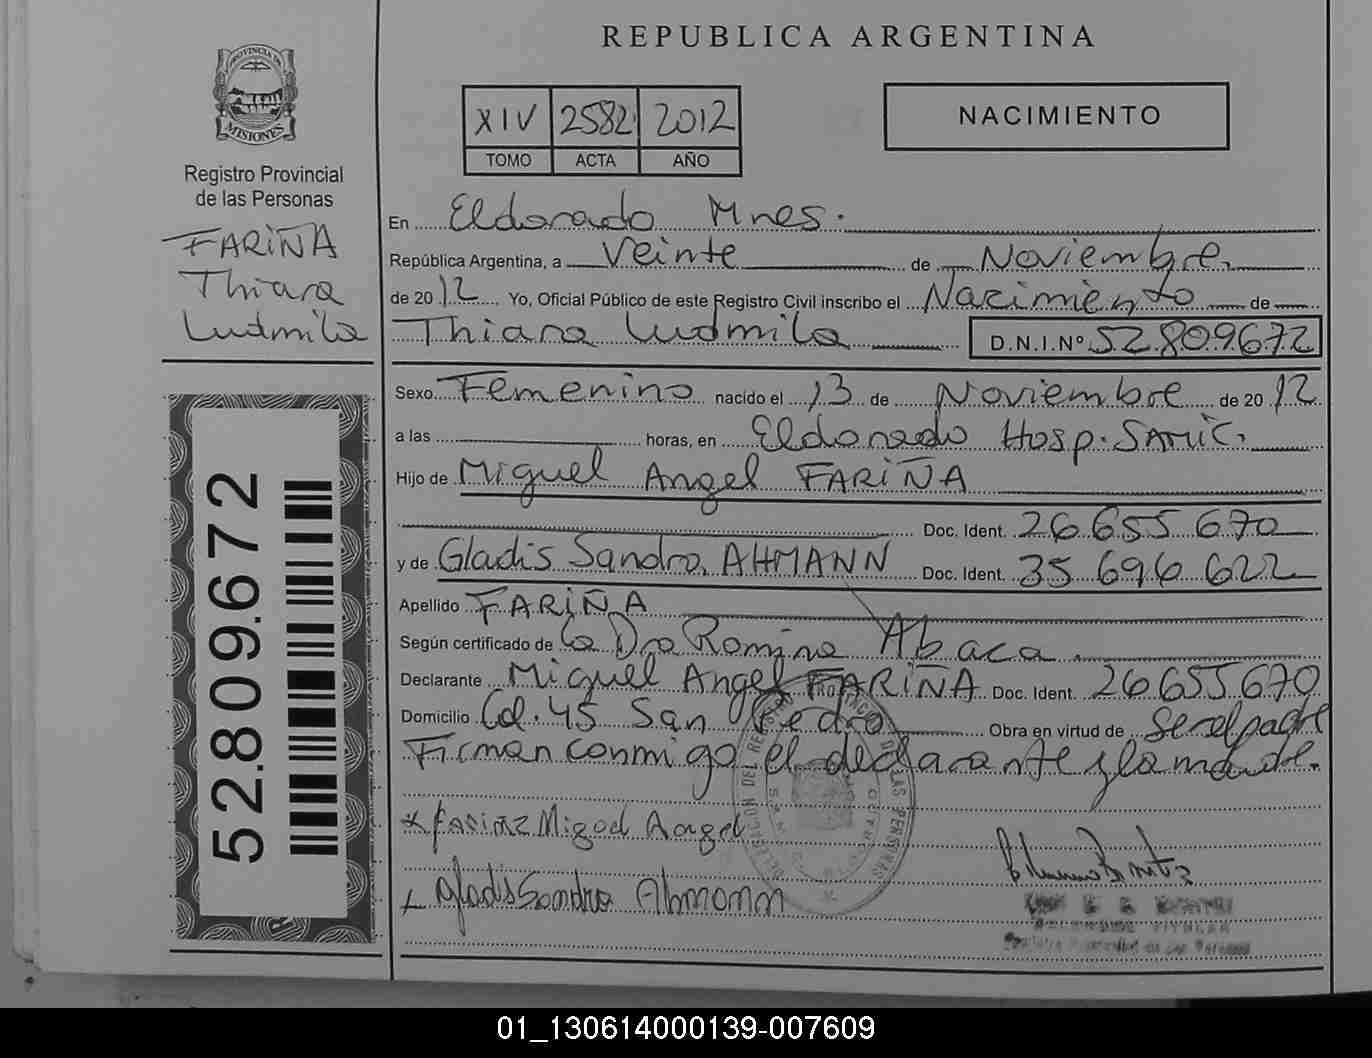 REPUBLICA ARGENTINA
PROVINCIA DE
MISIONES
Registro Provincial
de las Personas
FARIÑA
Thiara
Ludmila
XIV 2582 2012
TOMO ACTA AÑO
NACIMIENTO
En Eldorado Mnes.
República Argentina, a Veinte de Noviembre
de 2012 Yo, Oficial Público de este Registro Civil inscribo el Nacimiento de
Thiara Ludmila D.N.I.Nº 52.809.672
Sexo Femenino nacido el 13 de Noviembre de 2012
a las horas, en Eldorado Hosp. SAMIC.
Hijo de Miguel Angel FARIÑA
Doc. Ident. 26 655 670
y de Gladis Sandra AHMANN Doc. Ident. 35 696 622
Apellido FARIÑA
Según certificado de la Dra Romina Abaca
Declarante Miguel Angel FARIÑA Doc. Ident. 26655670
Domicilio Col. 45 San Pedro Obra en virtud de Ser el padre
Firman conmigo el declarante y la madre.
Miguel Angel
Gladis Sandra Ahmann
52.809.672
01_130614000139-007609